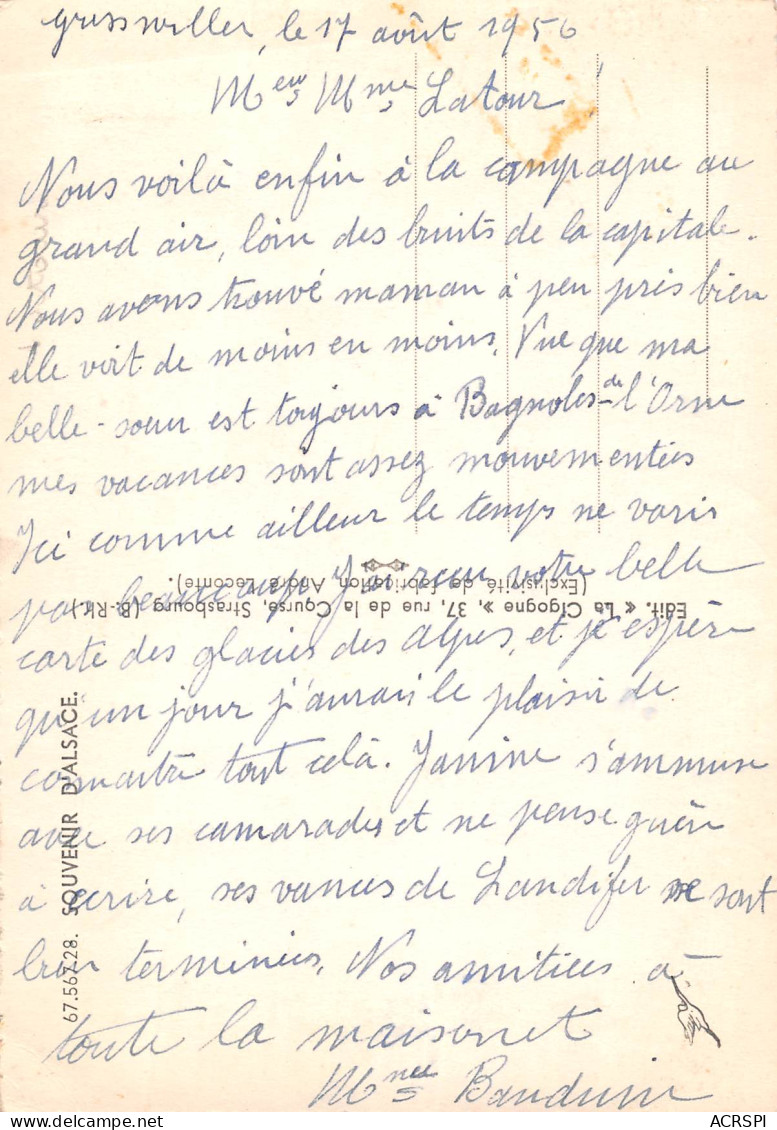 gresswiller, le 17 août 1956
Meur Mme Latour
Nous voilà enfin à la campagne au
grand air, loin des bruits de la capitale.
Nous avons trouvé maman à peu près bien
elle voit de moins en moins. Vue que ma
belle-sœur est toujours à Bagnoles-de-l'Orne
mes vacances sont assez mouvementées
Ici comme ailleur le temps ne varis
pas beaucoup J'ai reçu votre belle
carte des glaciés des alpes, et j'espère
qu'un jour j'aurai le plaisir de
connaitre tout celà. Janine s'ammuse
avec ses camarades et ne pense guère
à écrire, ses vances de Landifer se sont
bien terminées. Nos amitiées à
toute la maisonet
Mme Bauduin
67.567.28. SOUVENIR D'ALSACE.
Edit. « La Cigogne », 37, rue de la Course, Strasbourg (B.-Rh.).
(Exclusivité de fabrication André Leconte).
ACRSPI